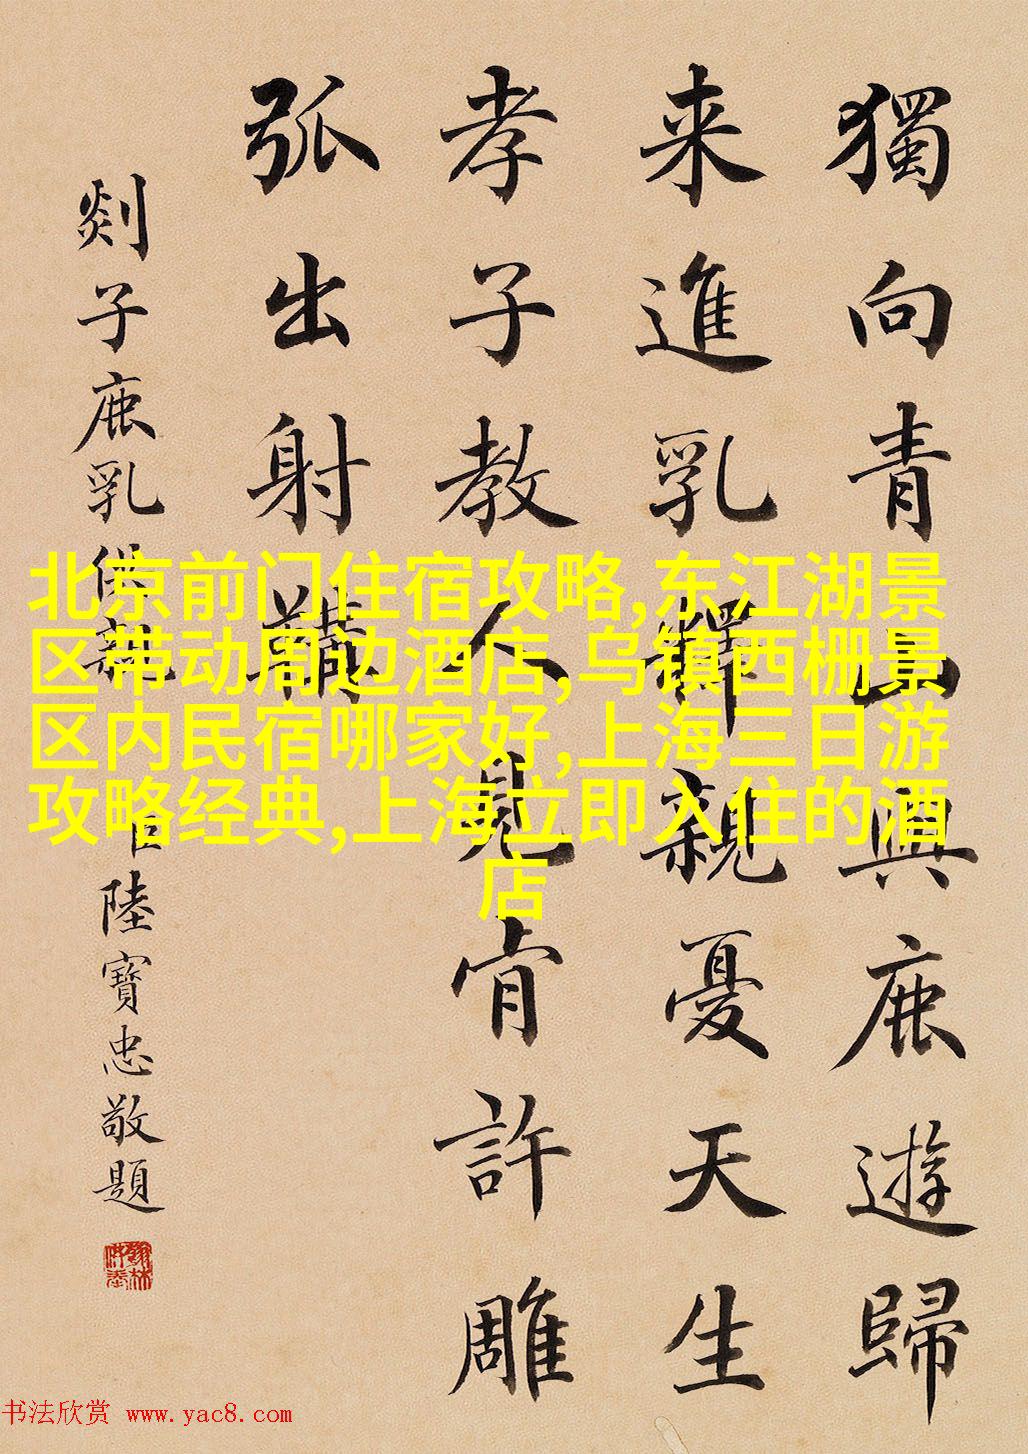 獨向青山與鹿遊歸
来進乳釋親憂天生
孝子教人見肯許雕
弧出射鞲
剡子鹿乳供親 臣陸寶忠敬題
北京前门住宿攻略,东江湖景
区带动周边酒店,乌镇西栅景
区内民宿哪家好,上海三日游
攻略经典,上海立即入住的酒
店
书法欣赏 www.yac8.com